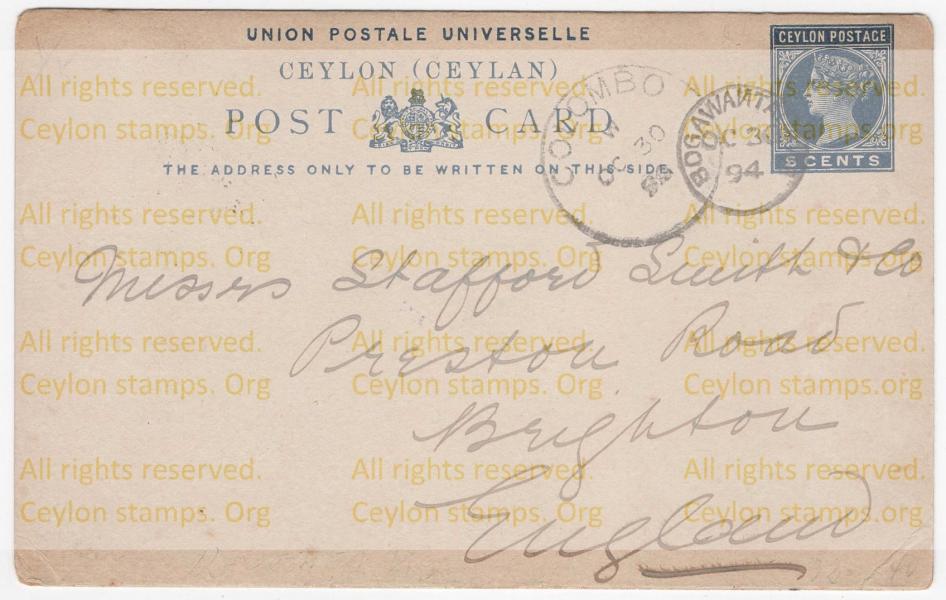 UNION POSTALE UNIVERSELLE
CEYLON (CEYLAN)
POST CARD
THE ADDRESS ONLY TO BE WRITTEN ON THIS SIDE.
CEYLON POSTAGE
5 CENTS
COLOMBO
W
OC 30
94
BOGAWANTA
OC 30
94
Messrs Stafford Smith & Co
Preston Road
Brighton
England
All rights reserved. All rights reserved. All rights reserved.
Ceylon stamps. Org Ceylon stamps. Org Ceylon stamps.org
All rights reserved. All rights reserved. All rights reserved.
Ceylon stamps. Org Ceylon stamps. Org Ceylon stamps.org
All rights reserved. All rights reserved. All rights reserved.
Ceylon stamps. Org Ceylon stamps. Org Ceylon stamps.org
All rights reserved. All rights reserved. All rights reserved.
Ceylon stamps. Org Ceylon stamps. Org Ceylon stamps.org